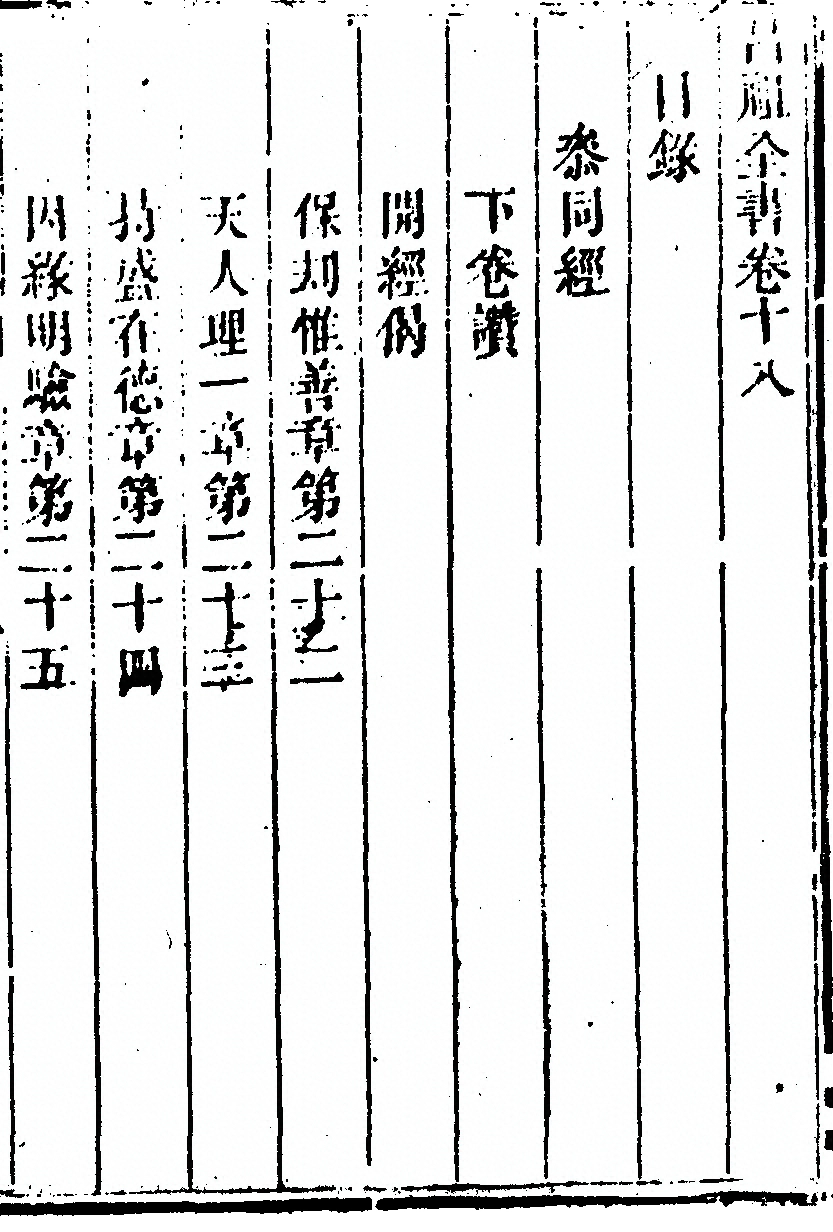 呂祖全書卷十八
目錄
叅同經
下卷讚
開經偈
保刦惟善章第二十二
天人理一章第二十三
持盛在德章第二十四
因緣明驗章第二十五